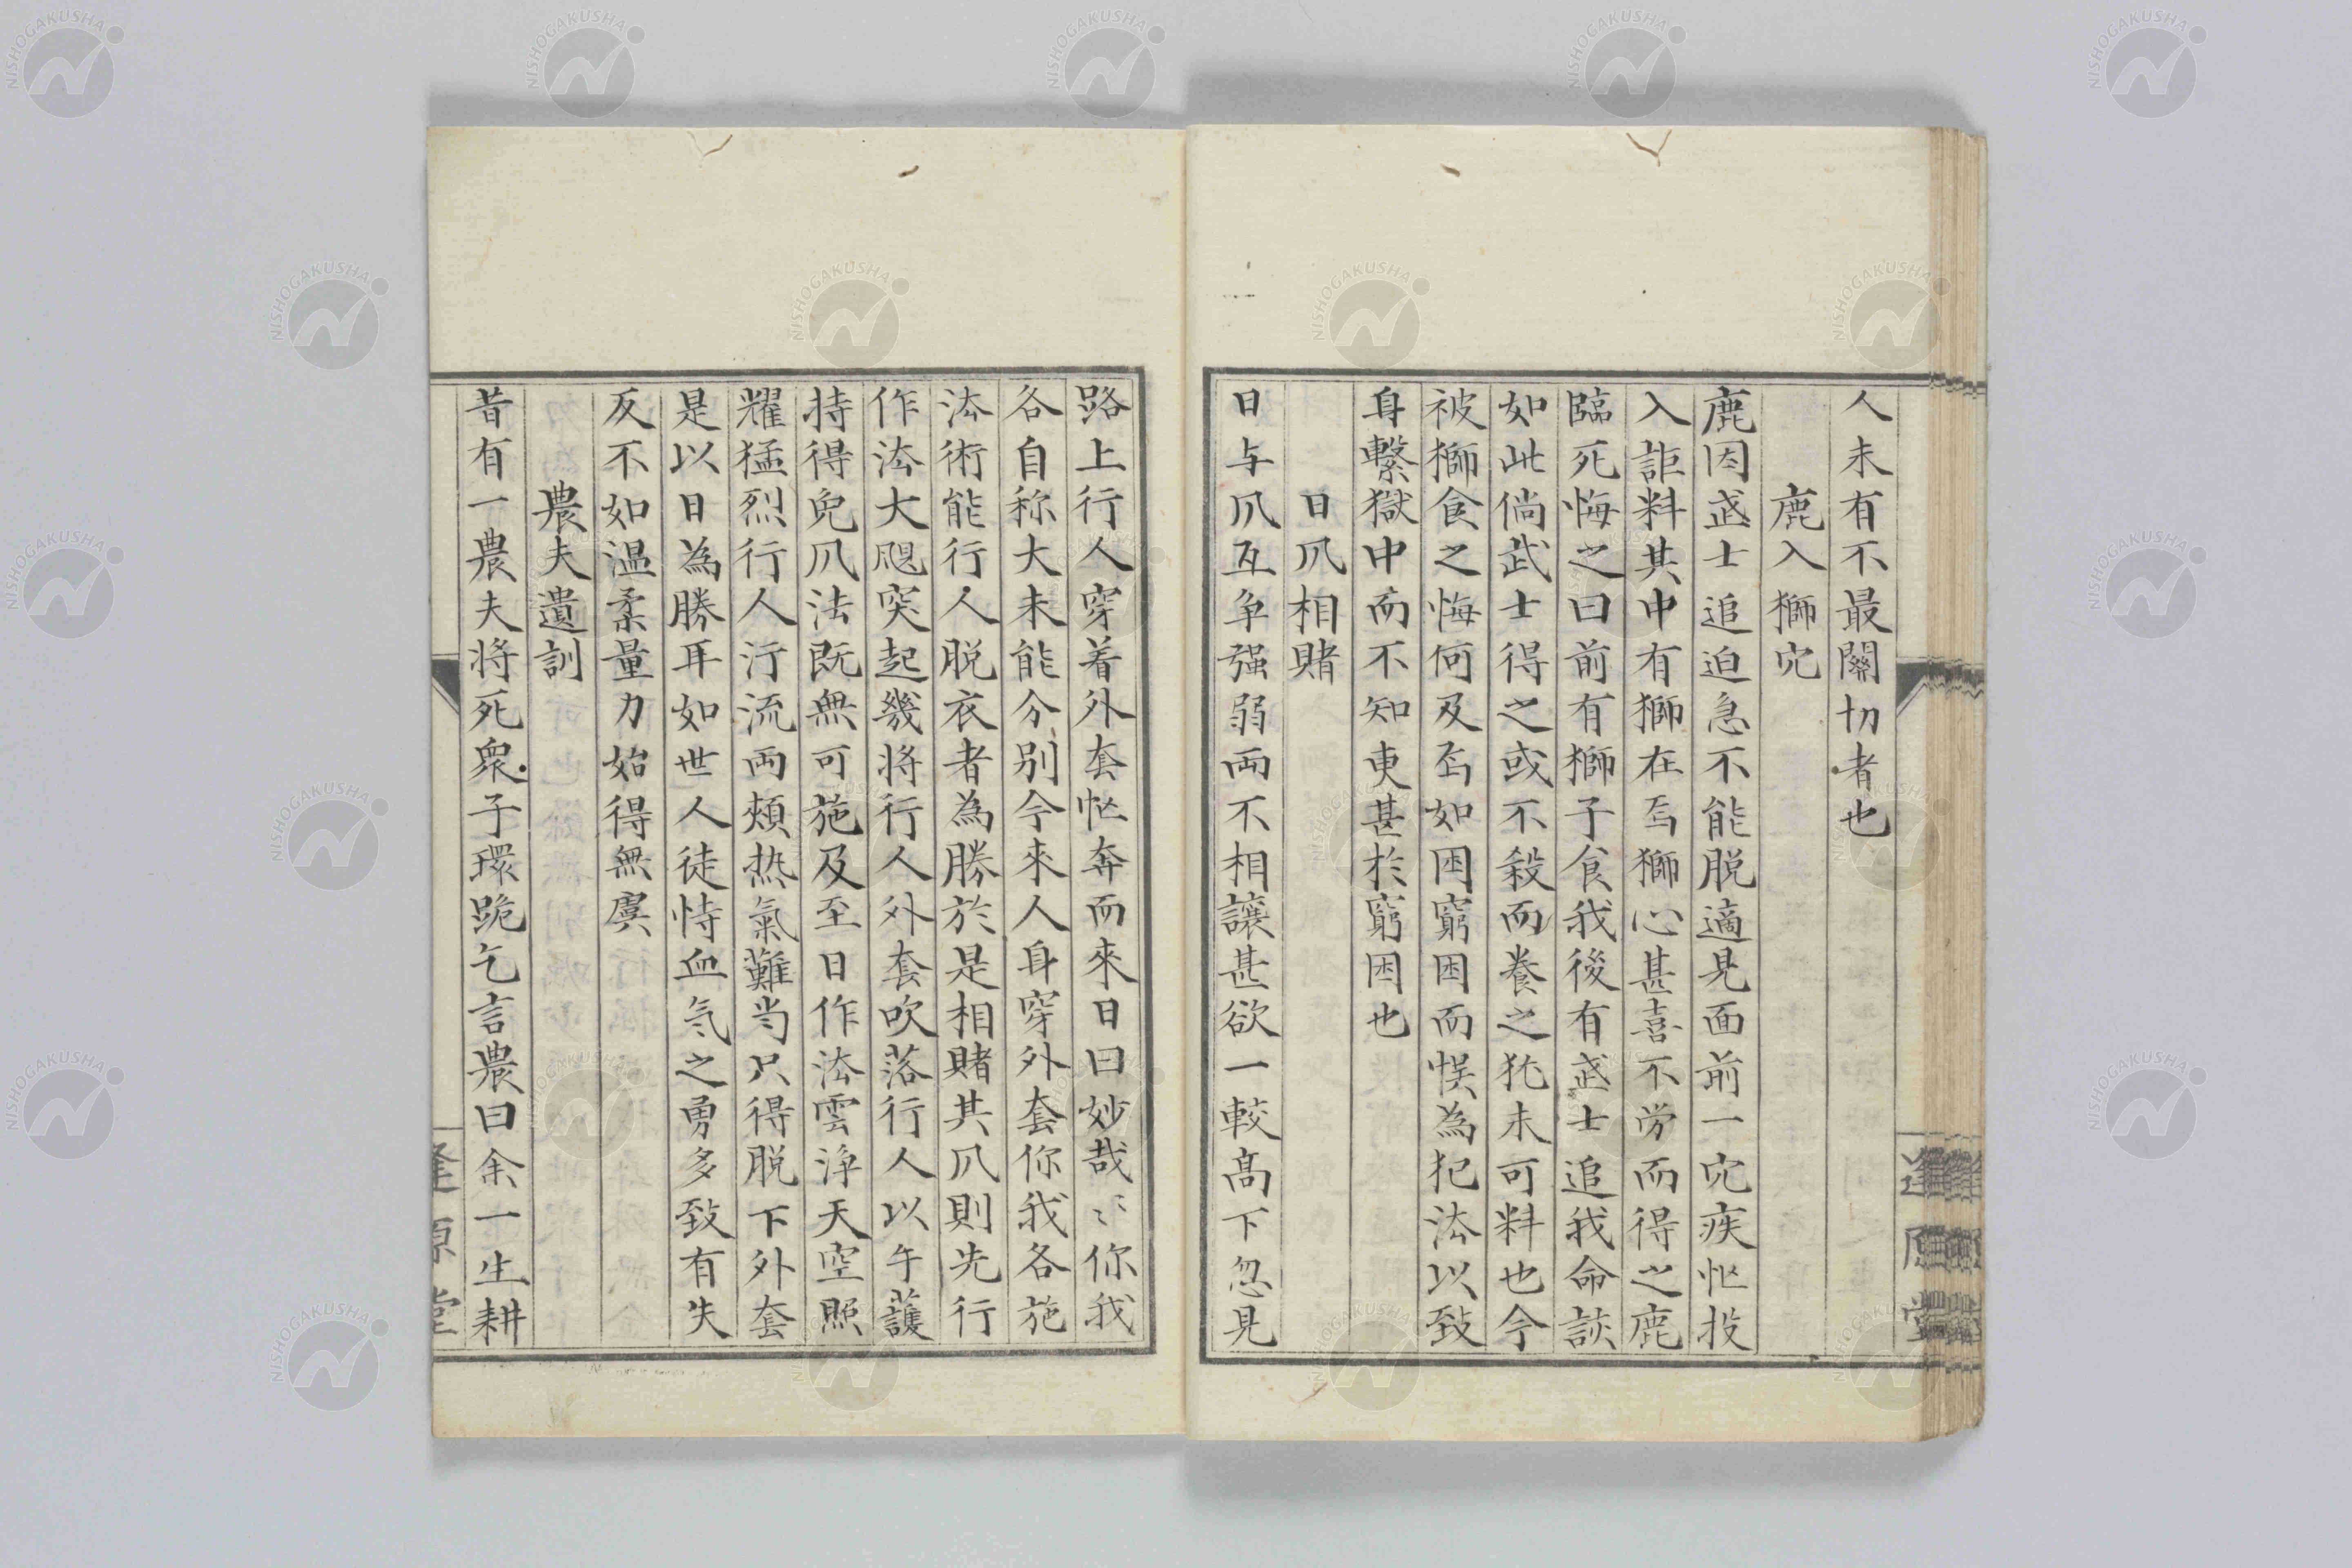 人未有不最關切者也
鹿入獅穴
鹿因武士追迫急不能脱適見面前一穴疾忙投
入詎料其中有獅在焉獅心甚喜不労而得之鹿
臨死悔之曰前有獅子食我後有武士追我命談
如此倘武士得之或不殺而養之犹未可料也今
被獅食之悔何及焉如困窮困而悮為犯法以致
身繫獄中而不知更甚於窮困也
日凨相賭
日与凨互争强弱両不相讓甚欲一較高下忽見
路上行人穿着外套忙奔而來日曰妙哉〻你我
各自称大未能分别今來人身穿外套你我各施
法術能行人脱衣者為勝於是相賭其凨則先行
作法大颶突起幾将行人外套吹落行人以手護
持得免凨法既無可施及至日作法雲浄天空照
耀猛烈行人汗流両頬热氣難当只得脱下外套
是以日為勝耳如世人徒恃血気之勇多致有失
反不如温柔量力始得無虞
農夫遺訓
昔有一農夫将死衆子環跪乞言農曰余一生耕
逢原堂
逢原堂
NISHOGAKUSHA